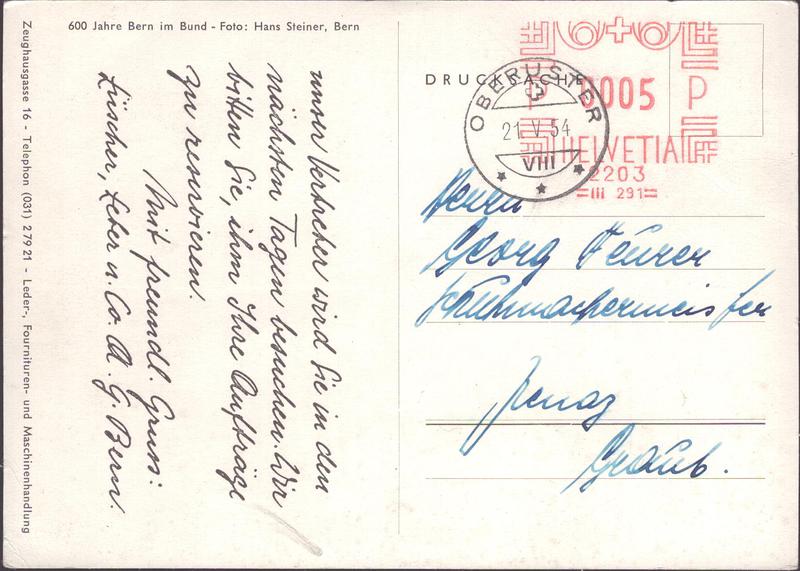 600 Jahre Bern im Bund - Foto: Hans Steiner, Bern
unser Vertreter wird Sie in den
nächsten Tagen besuchen. Wir
bitten Sie, ihm Ihre Aufträge
zu reservieren.
Mit freundl. Gruss:
Lüscher, Leber u. Co. A. G. Bern.
Zeughausgasse 16 - Telephon (031) 2 79 21 - Leder-, Fournituren- und Maschinenhandlung
DRUCKSACHE
P 0005 P
HELVETIA
2203
III 291
OBERUSTER
21. V. 54
VIII
Herrn
Georg Feurer
Schuhmachermeister
Jenaz
Graub.